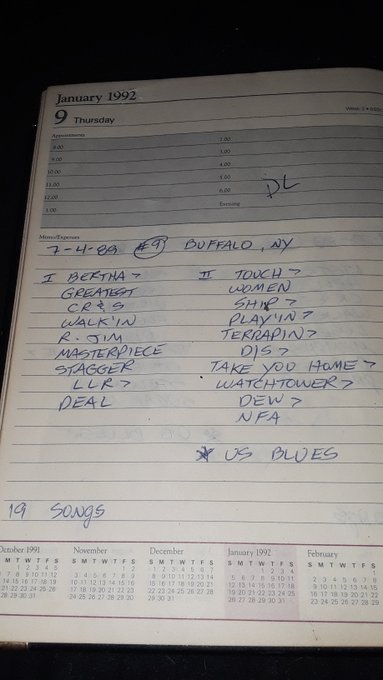 January 1992
9 Thursday
Appointments
8:00
9:00
10:00
11:00
12:00
1:00
2:00
3:00
4:00
5:00
6:00
Evening
DL
Memo/Expenses
7-4-89 #9 BUFFALO, NY
I BERTHA >
GREATEST
CR & S
WALK'IN
R. JIM
MASTERPIECE
STAGGER
LLR >
DEAL
II TOUCH >
WOMEN
SHIP >
PLAY'IN >
TERRAPIN >
D/S >
TAKE YOU HOME >
WATCHTOWER >
DEW >
NFA
* US BLUES
19 SONGS
October 1991
M T W T F S
1 2 3 4 5
7 8 9 10 11 12
14 15 16 17 18 19
21 22 23 24 25 26
28 29 30 31
November
S M T W T F S
1 2
3 4 5 6 7 8 9
10 11 12 13 14 15 16
17 18 19 20 21 22 23
24 25 26 27 28 29 30
December
S M T W T F S
1 2 3 4 5 6 7
8 9 10 11 12 13 14
15 16 17 18 19 20 21
22 23 24 25 26 27 28
29 30 31
January 1992
S M T W T F S
1 2 3 4
5 6 7 8 9 10 11
12 13 14 15 16 17 18
19 20 21 22 23 24 25
26 27 28 29 30 31
February
S M T W T F S
1
2 3 4 5 6 7 8
9 10 11 12 13 14 15
16 17 18 19 20 21 22
23 24 25 26 27 28 29